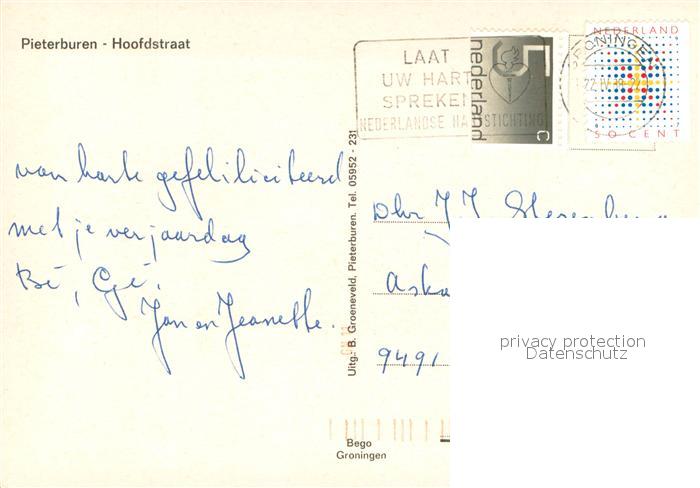 Pieterburen - Hoofdstraat
LAAT
UW HART
SPREKEN
NEDERLANDSE HA STICHTING
nederland
5
c
NEDERLAND
50 CENT
GRONINGEN
22 IV
van harte gefeliliciteerd
met je verjaardag
Bé, Gé,
Jan en Jeanette.
Uitg. B. Groeneveld, Pieterburen. Tel. 05952 - 231
Dhr J.J.
9491
privacy protection
Datenschutz
Bego
Groningen